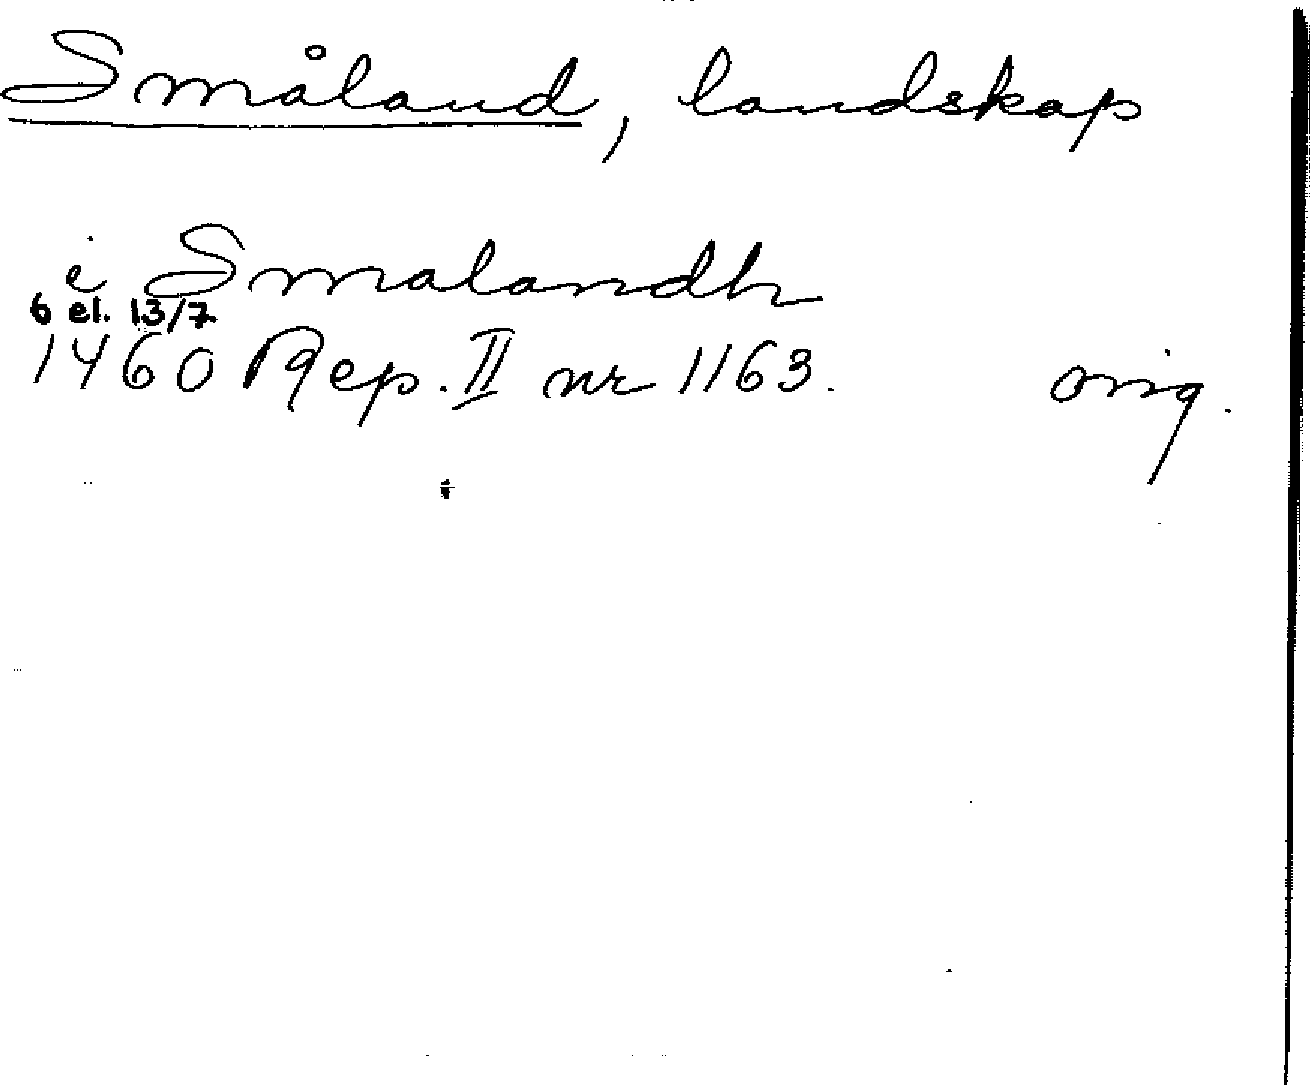 Småland, landskap
i Smalandh
6 el. 13/7
1460 Rep. II nr 1163. orig.